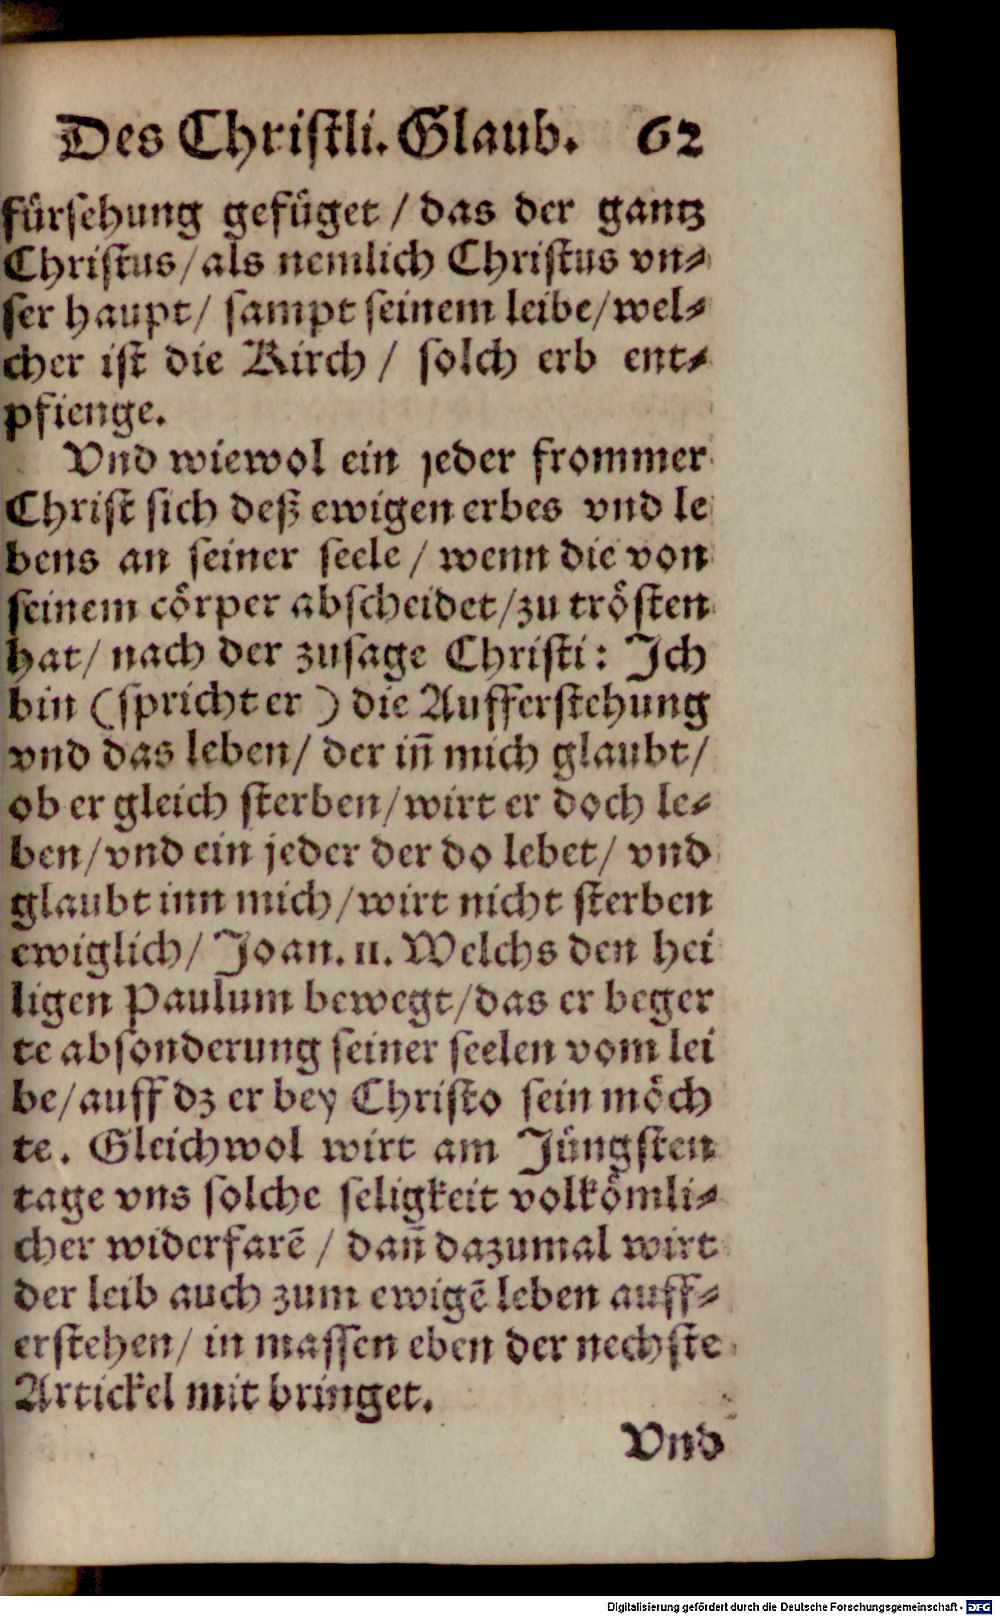 Des Christli. Glaub. 62
fürsehung gefüget / das der gantz
Christus / als nemlich Christus vn⸗
ser haupt / sampt seinem leibe / wel⸗
cher ist die Kirch / solch erb ent⸗
pfienge.
Vnd wiewol ein jeder frommer
Christ sich deß ewigen erbes vnd le
bens an seiner seele / wenn die von
seinem cörper abscheidet / zu trösten
hat / nach der zusage Christi: Ich
bin (spricht er) die Aufferstehung
vnd das leben / der iñ mich glaubt /
ob er gleich sterben / wirt er doch le⸗
ben / vnd ein jeder der do lebet / vnd
glaubt inn mich / wirt nicht sterben
ewiglich / Joan. 11. Welchs den hei
ligen Paulum bewegt / das er beger
te absonderung seiner seelen vom lei
be / auff dz er bey Christo sein möch
te. Gleichwol wirt am Jüngsten
tage vns solche seligkeit volkömli⸗
cher widerfarē / dañ dazumal wirt
der leib auch zum ewigē leben auff⸗
erstehen / in massen eben der nechste
Artickel mit bringet.
Vnd
Digitalisierung gefördert durch die Deutsche Forschungsgemeinschaft - DFG